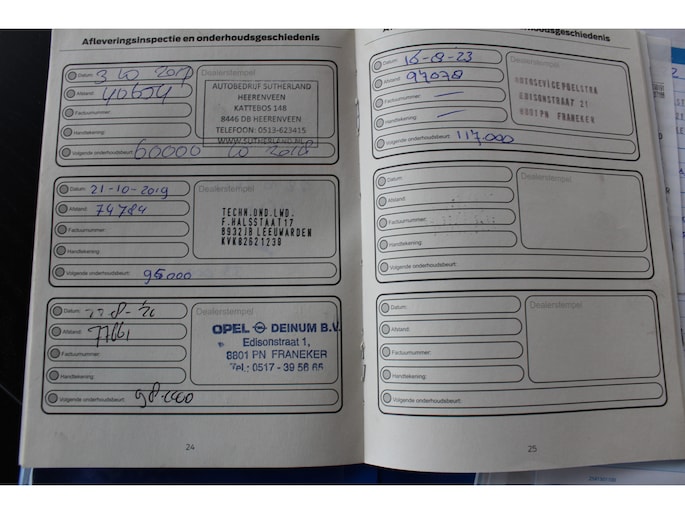 Afleveringsinspectie en onderhoudsgeschiedenis
Datum: 3 10 2017
Afstand: 40654
Factuurnummer:
Handtekening:
Volgende onderhoudsbeurt: 60000 10 2018
Dealerstempel
AUTOBEDRIJF SUTHERLAND
HEERENVEEN
KATTEBOS 148
8446 DB HEERENVEEN
TELEFOON: 0513-623415
WWW.SUTHERLAND.NL
Datum: 21-10-2019
Afstand: 74784
Factuurnummer:
Handtekening:
Volgende onderhoudsbeurt: 95000
Dealerstempel
TECHN.OND.LWD.
F.HALSSTAAT17
8932JB LEEUWARDEN
KVK02621230
Datum:
Afstand: 77661
Factuurnummer:
Handtekening:
Volgende onderhoudsbeurt: 98.000
Dealerstempel
OPEL DEINUM B.V.
Edisonstraat 1,
8801 PN FRANEKER
Tel.: 0517 - 39 56 65
24
houdsgeschiedenis
Datum: 16-8-23
Afstand: 97078
Factuurnummer: —
Handtekening: —
Volgende onderhoudsbeurt: 117.000
Dealerstempel
EDISONSTRAAT 21
8801PN FRANEKER
Datum:
Afstand:
Factuurnummer:
Handtekening:
Volgende onderhoudsbeurt:
Dealerstempel
Datum:
Afstand:
Factuurnummer:
Handtekening:
Volgende onderhoudsbeurt:
Dealerstempel
25